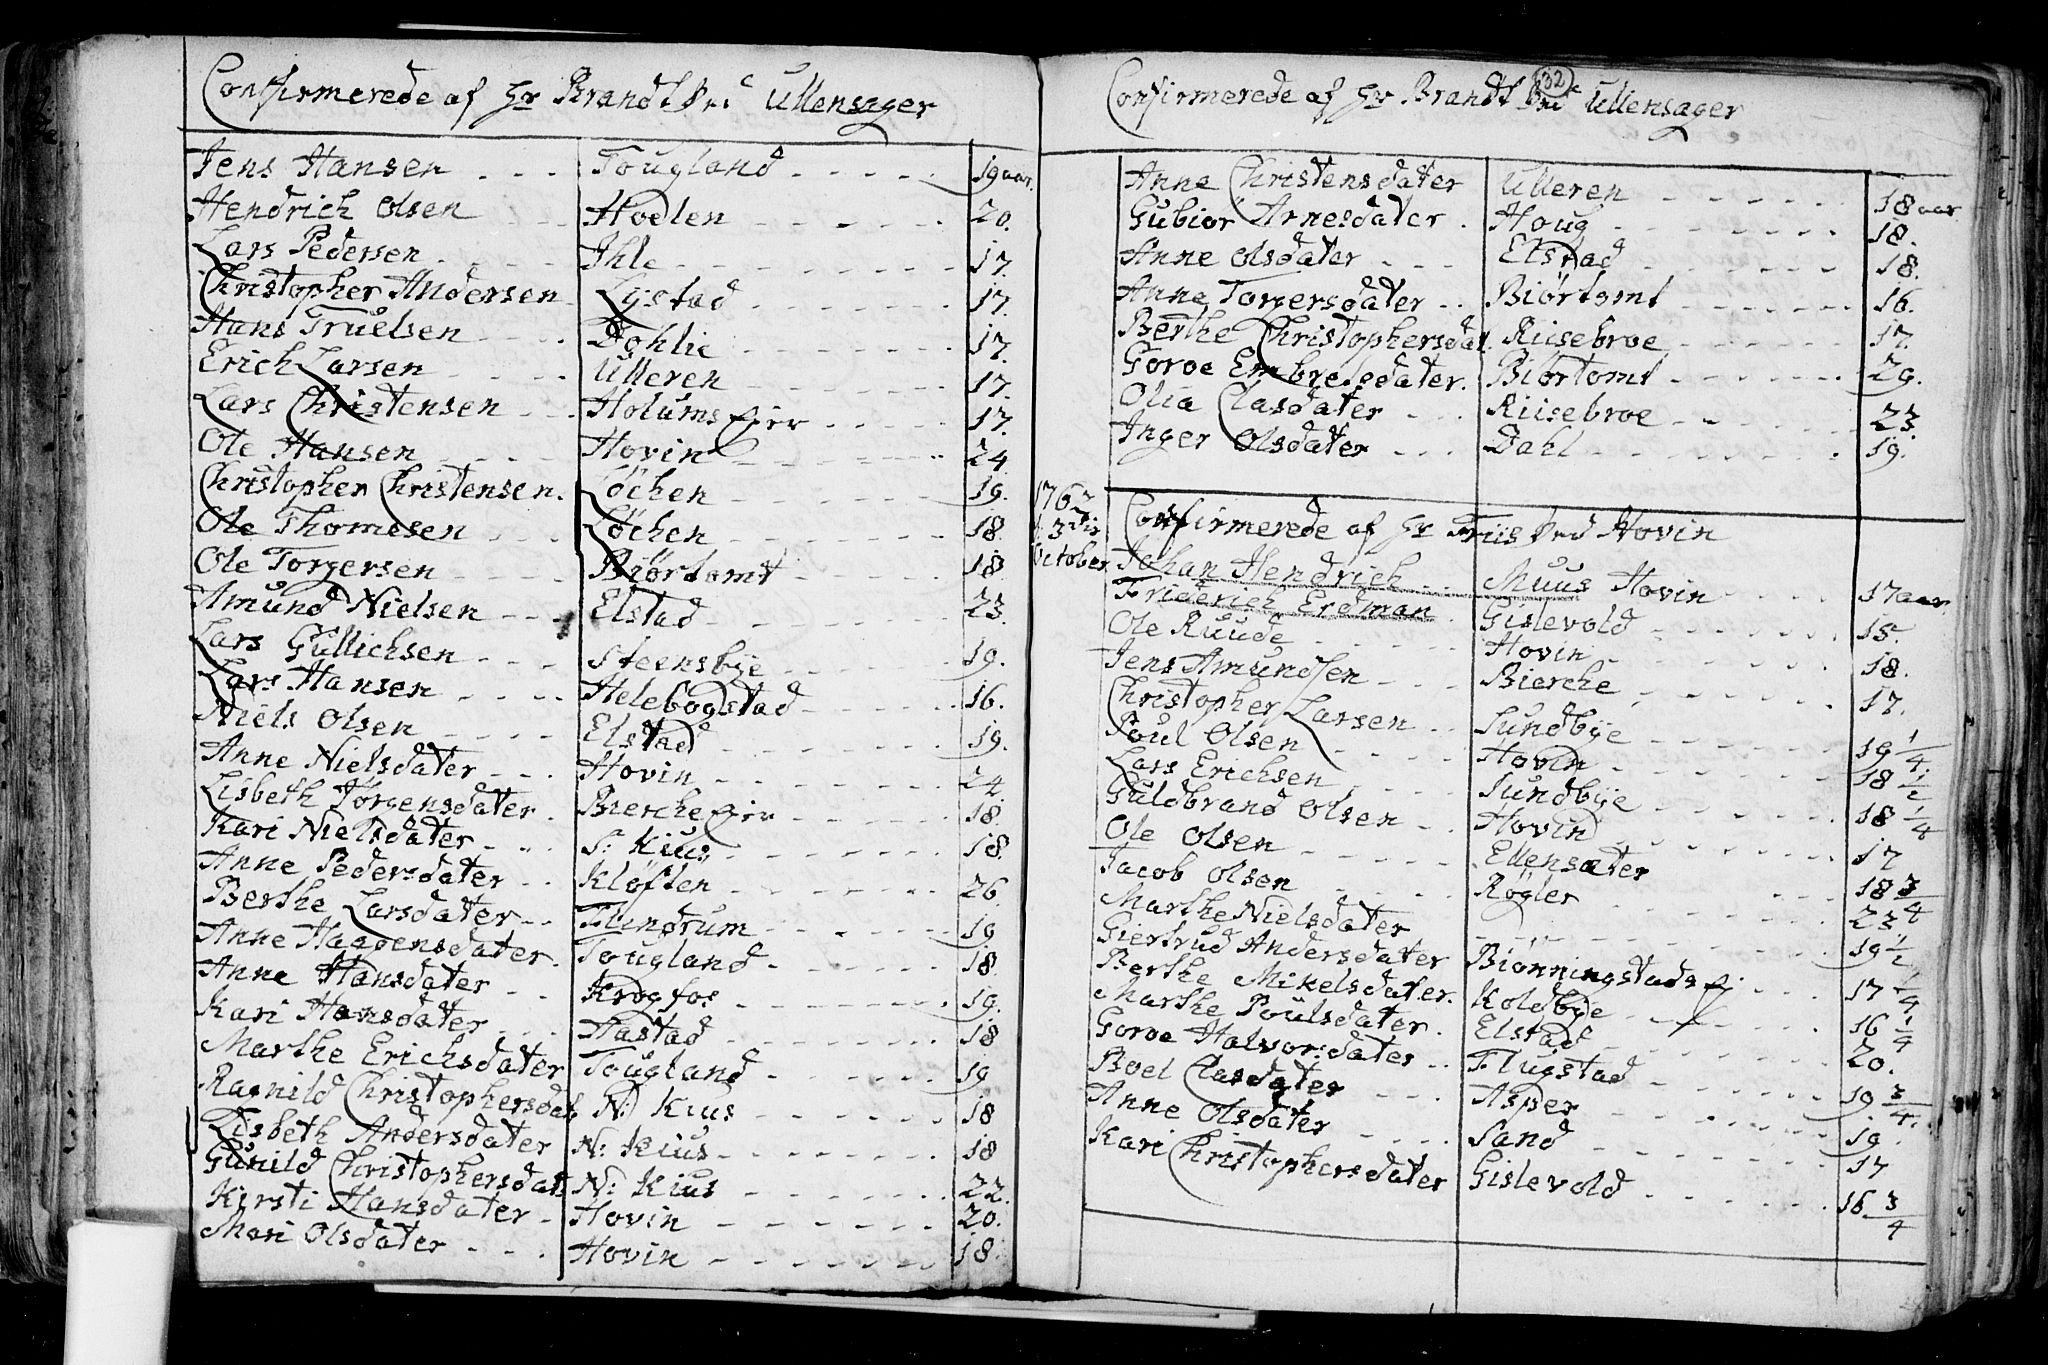 Confirmerede af Hr Brandt Ved Ullensager
Jens Hansen Tougland 19 aar.
Hendrich Olsen Hoelen 20.
Lars Pedersen Ihle 17.
Christopher Andersen Lystad 17.
Hans Truelsen Dohlie 17.
Erich Larsen Ulleren 17.
Lars Christensen Holums Eier 17.
Ole Hansen Hovin 24.
Christopher Christensen. Løchen 19.
Ole Thomesen Løchen 18.
Ole Torgersen Biørtomt 18.
Amund Nielsen Elstad 23.
Lars Gullichsen Steensbye 19.
Lars Hansen Helebogstad 16.
Niels Olsen Elstad 19.
Anne Nielsdater Hovin 24.
Lisbeth Jørgensdater Bierche Eier 18.
Kari Nielsdater S: Kius 18.
Anne Pedersdater Kløften 26.
Berthe Larsdater Flindrum 19
Anne Haagensdater. Tougland 18.
Anne Hansdater Krogfos 19.
Kari Hansdater Hastad 18
Marthe Erichsdater Tougland 19
Ragnild Christophersdat. N: Kius 18
Lisbeth Andersdater N: Kius 18
Gunild Christophersdat. N: Kius 22.
Kirsti Hansdater Hovin 20.
Mari Olsdater Hovin 18.
132
Confirmerede af Hr Brandt Ved Ullensager
Anne Christensdater Ulleren 18 aar
Gubiør Arnesdater. Houg 18.
Anne Olsdater Elstad 18.
Anne Torgersdater Biørtomt 16.
Berthe Christophersdat. Riisebroe 17.
Goroe Embregsdater. Biørtomt 29.
Olia Clasdater Riisebroe 23.
Inger Olsdater Dahl 19.
1762
d. 3die
October
Confirmerede af Hr Friis Ved Hovin
Johan Hendrich Muus Hovin 17 aar.
Friderich Erdman Gislevold 15.
Ole Ruude Hovin 18.
Jens Amundsen Bierche 17.
Christopher Larsen Sundbye 19 1/4
Poul Olsen Hovin 18 1/2
Lars Erichsen Sundbye 18 1/4
Guldbrand Olsen Hovin 17
Ole Olsen Ellensæter 18 3/4
Jacob Olsen Røgler 23.
Marthe Nielsdater 19 1/2
Giertrud Andersdater Biønningstads E. 17 1/4
Berthe Mikelsdater. Koldbye 16 1/4
Marthe Poulsdater. Elstad 20.
Goroe Halvorsdater Flugstad 19 3/4.
Boel Clasdater Asper 19.
Anne Olsdater Sand 17
Kari Christophersdater Gislevold 16 3/4